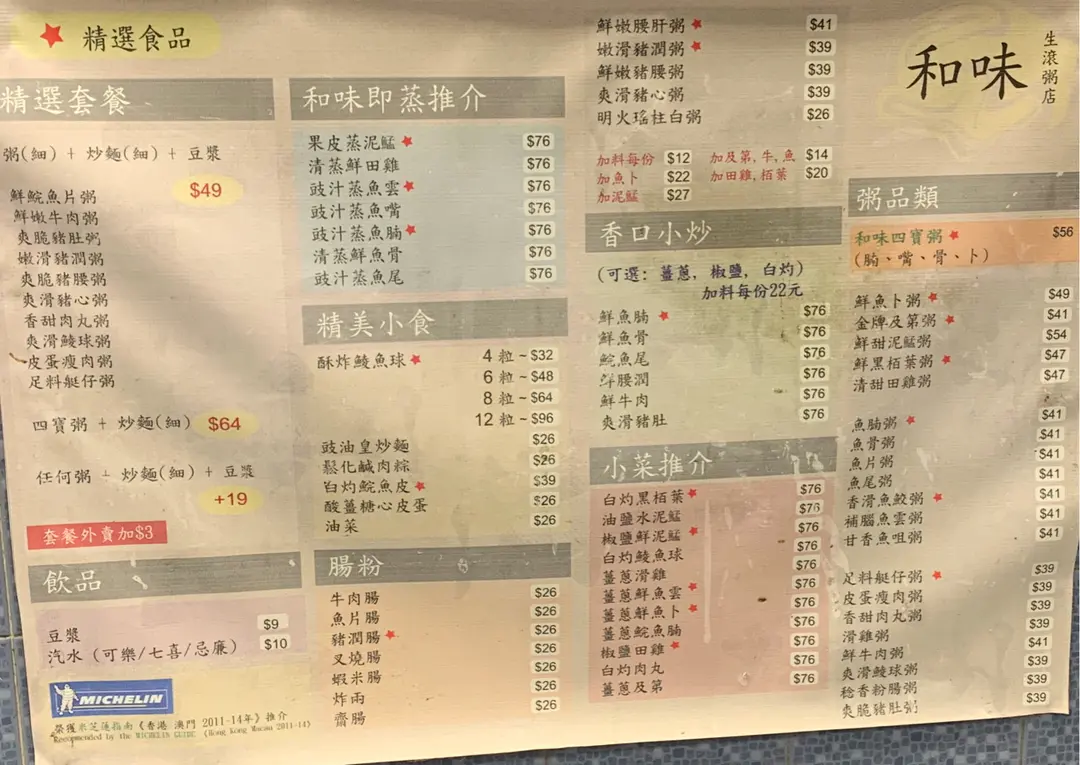 ★ 精選食品
精選套餐
粥(細) + 炒麵(細) + 豆漿
$49
鮮鯇魚片粥
鮮嫩牛肉粥
爽脆豬肚粥
嫩滑豬潤粥
爽脆豬腰粥
爽滑豬心粥
香甜肉丸粥
爽滑鯪球粥
皮蛋瘦肉粥
足料艇仔粥
四寶粥 + 炒麵(細) $64
任何粥 + 炒麵(細) + 豆漿
+19
套餐外賣加$3
飲品
豆漿 $9
汽水 (可樂/七喜/忌廉) $10
MICHELIN
榮獲米芝蓮指南《香港 澳門 2011-14年》推介
Recommended by the MICHELIN GUIDE (Hong Kong Macau 2011-14)
和味即蒸推介
果皮蒸泥鯭★ $76
清蒸鮮田雞 $76
豉汁蒸魚雲★ $76
豉汁蒸魚嘴 $76
豉汁蒸魚腩★ $76
清蒸鮮魚骨 $76
豉汁蒸魚尾 $76
精美小食
酥炸鯪魚球★ 4 粒 ~ $32
6 粒 ~ $48
8 粒 ~ $64
12 粒 ~ $96
豉油皇炒麵 $26
鬆化鹹肉粽 $26
白灼鯇魚皮★ $39
酸薑糖心皮蛋 $26
油菜 $26
腸粉
牛肉腸 $26
魚片腸 $26
豬潤腸★ $26
叉燒腸 $26
蝦米腸 $26
炸兩 $26
齋腸 $26
鮮嫩腰肝粥★ $41
嫩滑豬潤粥★ $39
鮮嫩豬腰粥 $39
爽滑豬心粥 $39
明火瑤柱白粥 $26
加料每份 $12 加及第,牛,魚 $14
加魚卜 $22 加田雞,栢葉 $20
加泥鯭 $27
香口小炒
(可選: 薑蔥, 椒鹽, 白灼)
加料每份22元
鮮魚腩★ $76
鮮魚骨 $76
鯇魚尾 $76
鮮腰潤 $76
鮮牛肉 $76
爽滑豬肚 $76
小菜推介
白灼黑栢葉★ $76
油鹽水泥鯭 $76
椒鹽鮮泥鯭★ $76
白灼鯪魚球 $76
薑蔥滑雞 $76
薑蔥鮮魚雲★ $76
薑蔥鮮魚卜★ $76
薑蔥鯇魚腩 $76
椒鹽田雞★ $76
白灼肉丸 $76
薑蔥及第 $76
和味 生滾粥店
粥品類
和味四寶粥★ $56
(腩、嘴、骨、卜)
鮮魚卜粥★ $49
金牌及第粥★ $41
鮮甜泥鯭粥 $54
鮮黑栢葉粥★ $47
清甜田雞粥 $47
魚腩粥★ $41
魚骨粥 $41
魚片粥 $41
魚尾粥 $41
香滑魚鮫粥★ $41
補腦魚雲粥 $41
甘香魚咀粥 $41
足料艇仔粥★ $39
皮蛋瘦肉粥 $39
香甜肉丸粥 $39
滑雞粥 $39
鮮牛肉粥 $41
爽滑鯪球粥 $39
稔香粉腸粥 $39
爽脆豬肚粥 $39